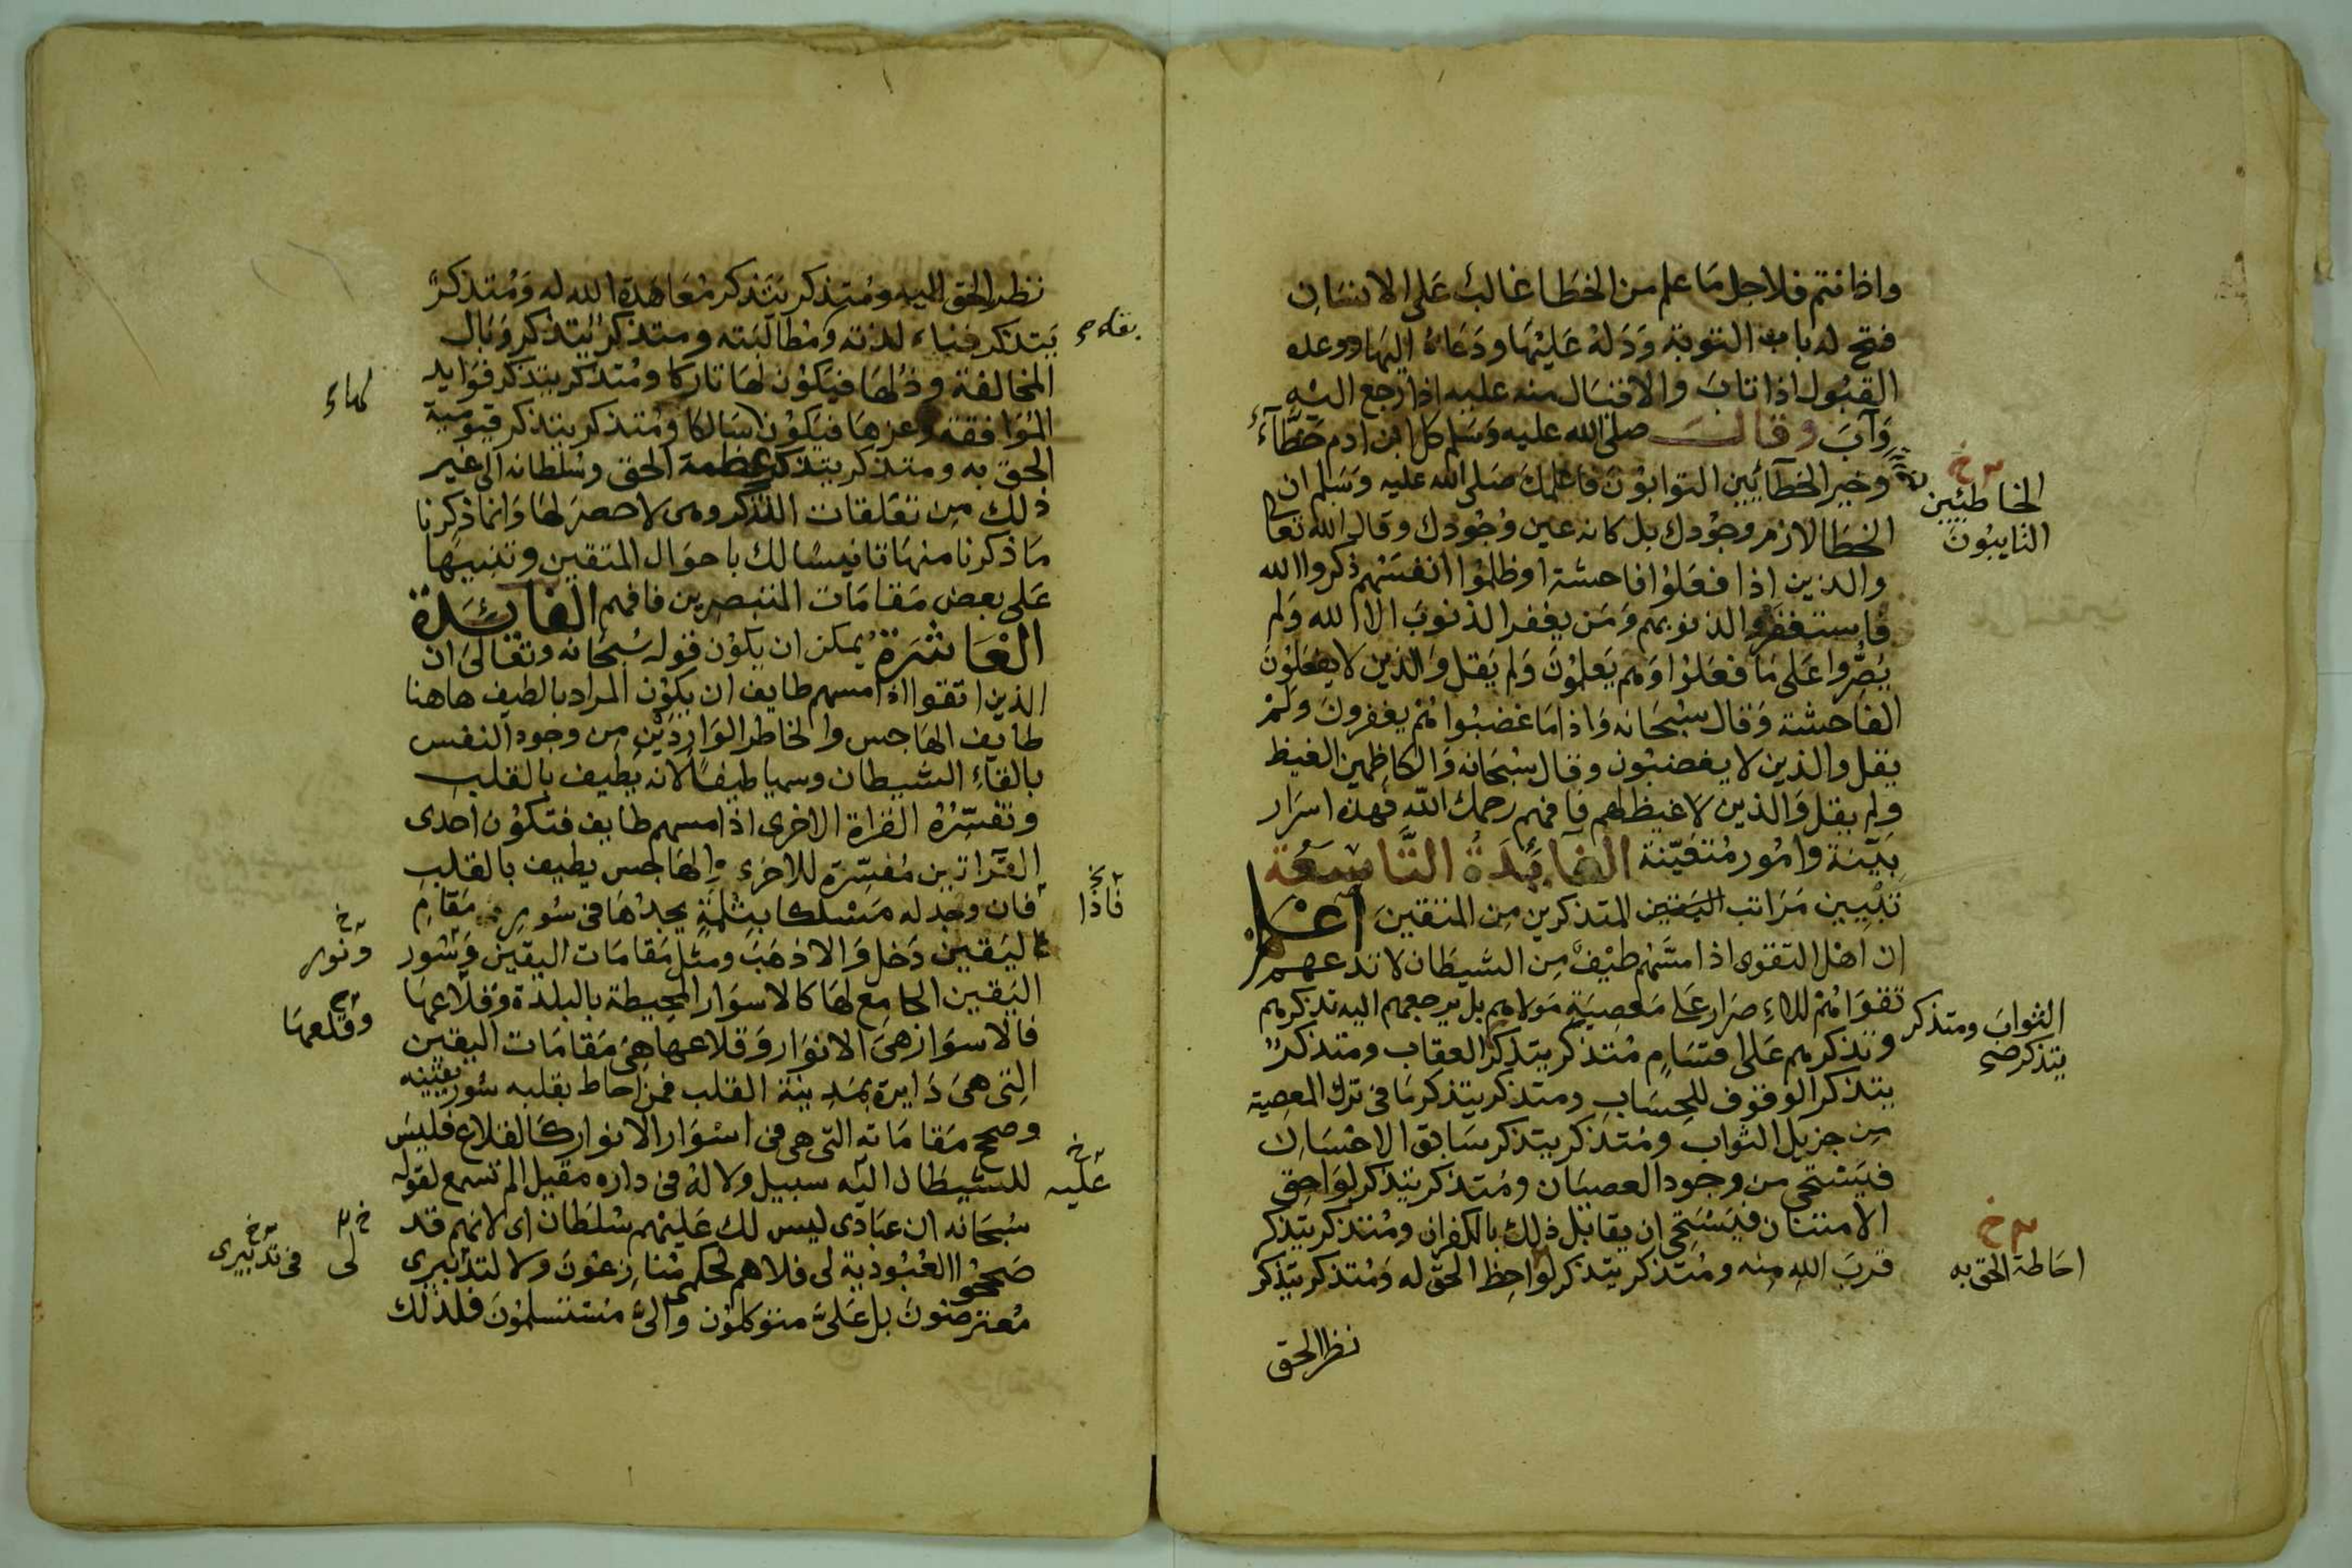 واذا انتم فلاجل مَا علم من الخطَا غالبٌ عَلى الانسَان
فتح له باب التوبة وَدَلهُ عَليْهَا ودَعَاهُ اليهَا ووعده
القبُول اذا تابَ والاقبَال منه عليه اذا رجع اليْه
وَآبَ وقالَ صلى الله عليه وَسَلم كل ابن ادم خَطَّآءٌ
وخير الخطآئِين التوابوُنَ فاعلمكَ صَلى الله عليه وَسَلم ان
الخطَا لازم وجُودك بل كانه عين وُجُودك وقال الله تعالى
والذين اذا فعَلوُا فاحشة اوظلموُا انفسَهم ذكروا الله
فاستغفرُوا لذنوبهم وَمَن يغفر الذنوبَ الا الله وَلم
يُصُّروا عَلى مَا فعَلوُا وَهم يَعلموُنَ وَلم يَقل وَالذين لا يفعَلوُنَ
الفاحشة وَقال سُبْحَانه وَاذا مَا غضبُوا هُمْ يغفرونَ ولَمْ
يقل والذين لا يغضبُون وقال سُبْحَانه وَالكاظمين الغيظ
ولم يقل وَالذين لا غيظ لهم فافهم رحمك الله فهذه اسرَار
بَيّنة وامُور مُتعَيّنة الفَائِدَةُ التَّاسِعَة
تبْيِين مَرَاتب المتذكرين مِن المتقينَ اعلم
ان اهْل التقوى اذا مسَّهم طيْفٌ مِن الشيطَان لا تدعهم
تقوَاهُمْ للاءِصرَار عَلى مَعصِيَةِ مَولاهم بل يرجعهم اليه تذكرهم
وتذكرهم عَلى اقسَامٍ مُتذكر يتذكر العقاب ومتذكرٌ
يتذكر الوقوف للحِسَاب ومتذكر يتذكر مَا فى ترك المعصِية
مِن جزيل الثواب ومُتذكر يتذكر سَابق الاحْسَان
فيَسْتحى من وجود العصيَان ومُتذكر يتذكر لوَاحِق
الامتنان فيَسْتَحِى ان يقابَل ذلك بالكفران ومُتذكر يتذكر
قربَ الله مِنه ومُتذكر يتذكر لوَاحِظ الحق له وَمُتذكر يتذكر
نظر الحق
الخاطئِين
التايبُونَ
الثوابَ ومتذكر
يتذكر
احَاطة الحق به
نظر الحق اليه ومُتذكر يتذكر مُعَاهَدة الله له وَمُتذكرٌ
يَتذكر فناء لذته وَمُطالبَته ومتذكرٌ يتذكر وَبَال
المخالفة وذُلهَا فيَكوُن لهَا تاركا ومُتذكر يتذكر فوَايد
المُوَافقة وعزهَا فيَكوُن لهَا سَالكا وَمُتذكر يتذكر قيوُمية
الحق به ومتذكر يتذكر عظمة الحق وسُلطانه الى غير
ذلك مِن تعَلقات التذكر وهى لا حصرَ لهَا وَانما ذكرنا
مَا ذكرنا منهَا تانيسًا لك باحوَال المتقين وتنبيهًا
عَلى بعض مَقامَات المتبصِرين فافهم الفائدَة
العَاشَرَة يُمكن ان يكوُن قوله سُبْحَانه وتعَالى ان
الذين اتقوا اذا مسهم طايف ان يكوُن المراد بالطيف هَاهنا
طايف الهَاجس والخاطر الوَارِدَيْنِ مِن وجود النفس
بالقاءِ الشيطان وسميا طيفًا لانه يُطيف بالقلب
وتفسّرُهُ القراة الاخرى اذا مسهم طايف فتكوُن احدى
القرآتين مُفسِّرة للاخرى والهَاجس يطيف بالقلب
فان وجد له مَسْلكا بثلمَةٍ يجدُهَا فى سُور مَقامِ
اليَقين دَخل وَالا ذهَبَ ومثل مَقامَات اليقين وَسُور
اليَقين الجامع لهَا كالاسوَار المحِيطة بالبلدَة وَقلاعهَا
فالاسوَار هىَ الانوَار وَقلاعهَا هىَ مَقامَات اليقين
التِى هىَ دَايرة بمَدِينة القلب فمن احاط بقلبه سُور يقينه
وصحح مَقامَاته التى هى فى اسْوَار الانوار كالقلاع فليسَ
للشيطَان اليْه سبيل ولا لهُ فى داره مقيل الم تسمع لقوله
سُبْحَانه ان عبَادى ليس لك عَليْهم سُلطَان اى لانهم قد
صَححُوا العُبُودِية لى فلاهم لحكمى مُنازعُونَ ولا لتدبيرى
مُعترضونَ بل عَلىَّ متوَكلوُن والىَّ مُسْتسلموُنَ فلذلك
لهاء
فاذا
ونور
وَقلعهَا
عَليه
لى
فى تدبيرى